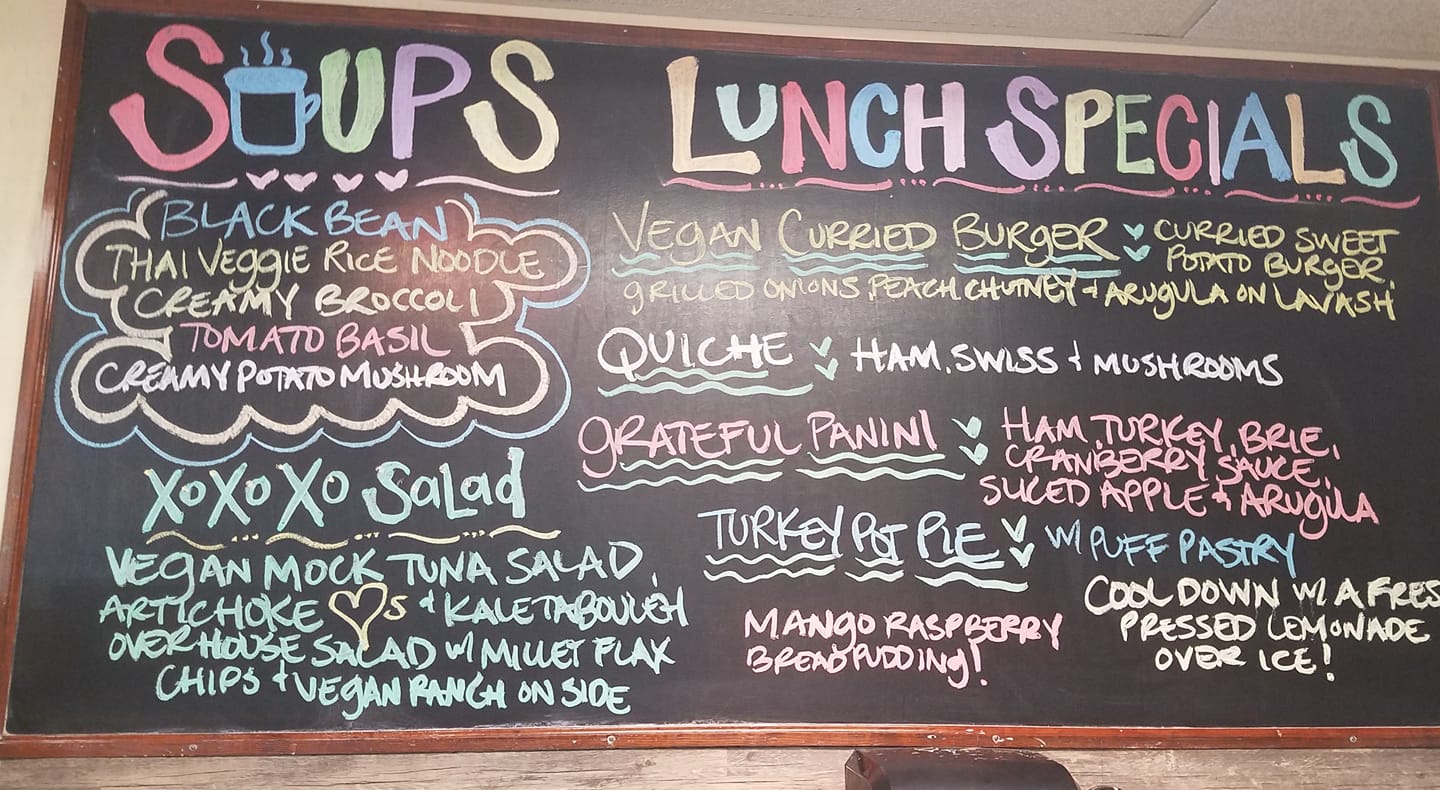 SOUPS
BLACK BEAN
THAI VEGGIE RICE NOODLE
CREAMY BROCCOLI
TOMATO BASIL
CREAMY POTATO MUSHROOM
XOXOXO SALAD
VEGAN MOCK TUNA SALAD,
ARTICHOKE ♡S + KALE TABOULEH
OVER HOUSE SALAD W/ MILLET FLAX
CHIPS + VEGAN RANCH ON SIDE
LUNCH SPECIALS
VEGAN CURRIED BURGER CURRIED SWEET
POTATO BURGER,
GRILLED ONIONS, PEACH CHUTNEY + ARUGULA ON LAVASH
QUICHE HAM, SWISS + MUSHROOMS
GRATEFUL PANINI HAM, TURKEY, BRIE,
CRANBERRY SAUCE,
SLICED APPLE + ARUGULA
TURKEY POT PIE W/ PUFF PASTRY
MANGO RASPBERRY
BREAD PUDDING!
COOL DOWN W/ A FRES
PRESSED LEMONADE
OVER ICE!